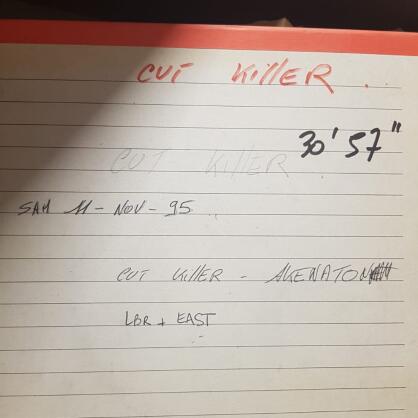 CUT KILLER .
30' 57"
CUT KILLER
SAM 11 - NOV - 95
CUT KILLER - AKENATON
LBR + EAST